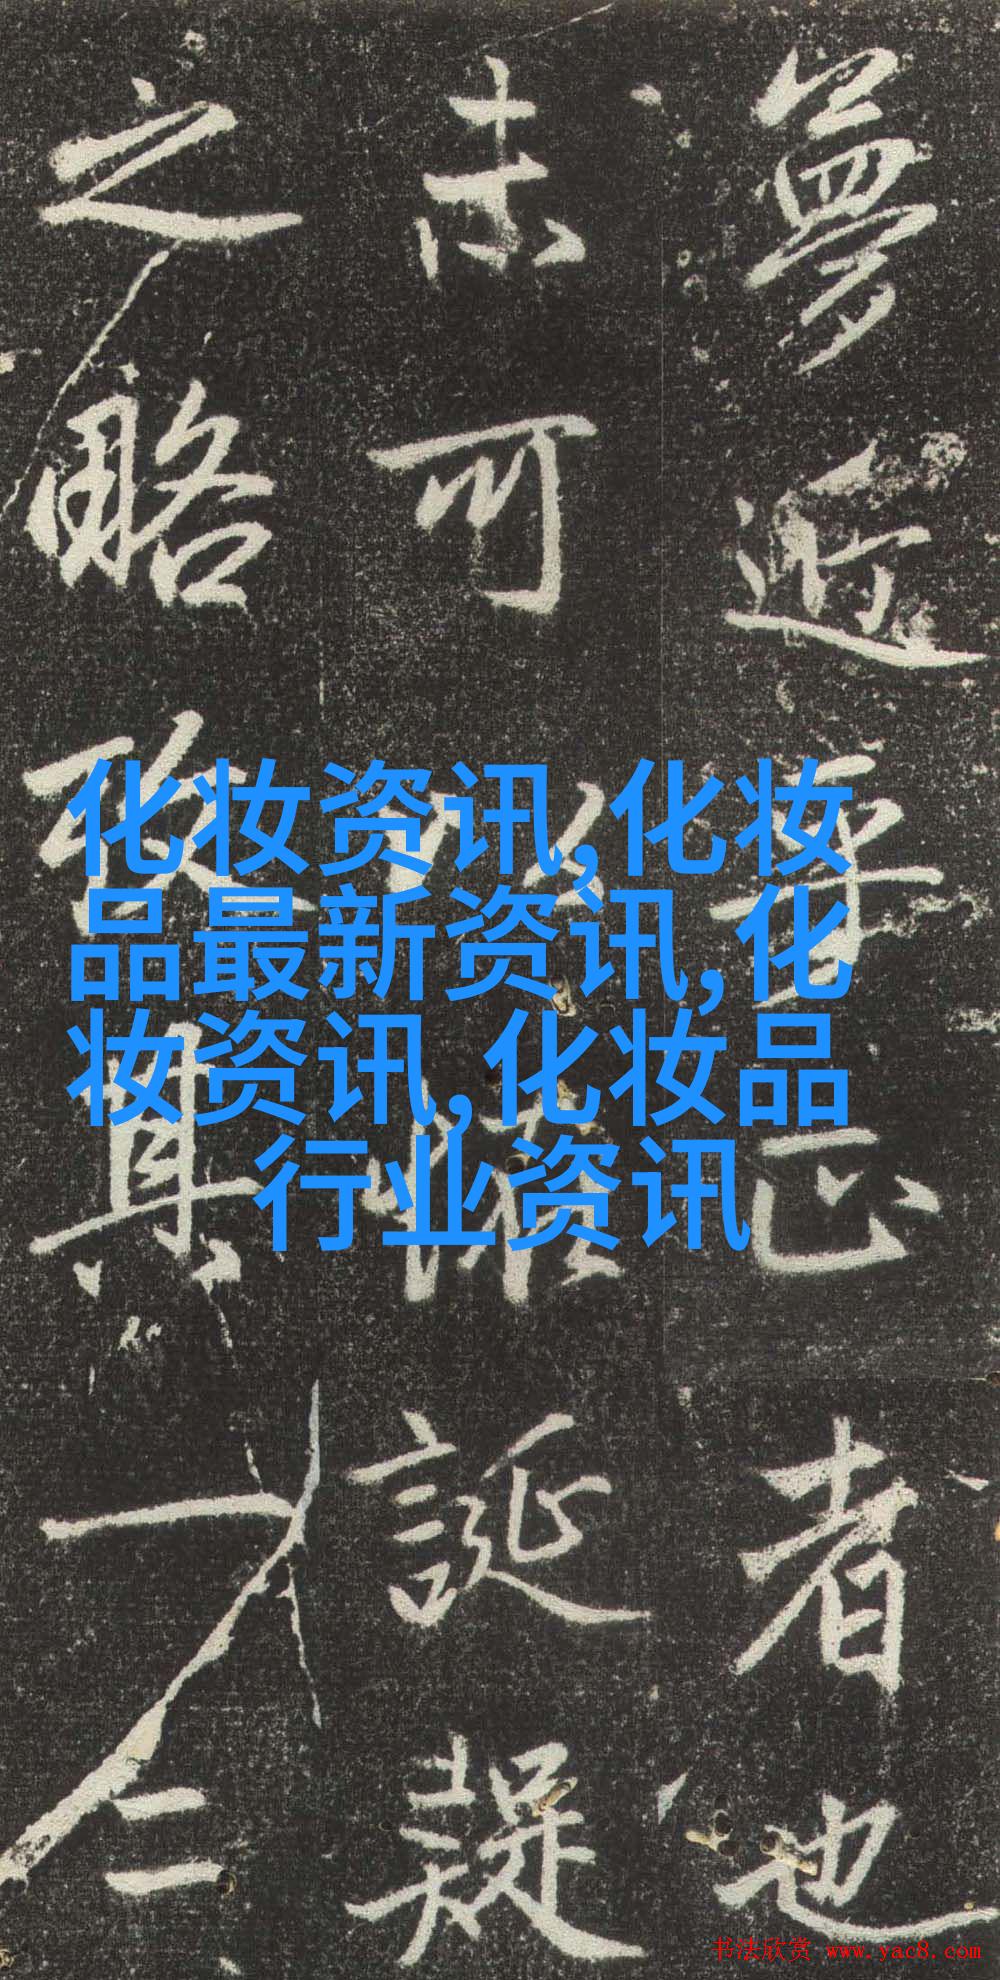 夢近正者也
可以誕疑
之略改其一二
化妆资讯,化妆
品最新资讯,化
妆资讯,化妆品
行业资讯
书法欣赏 www.yac8.com